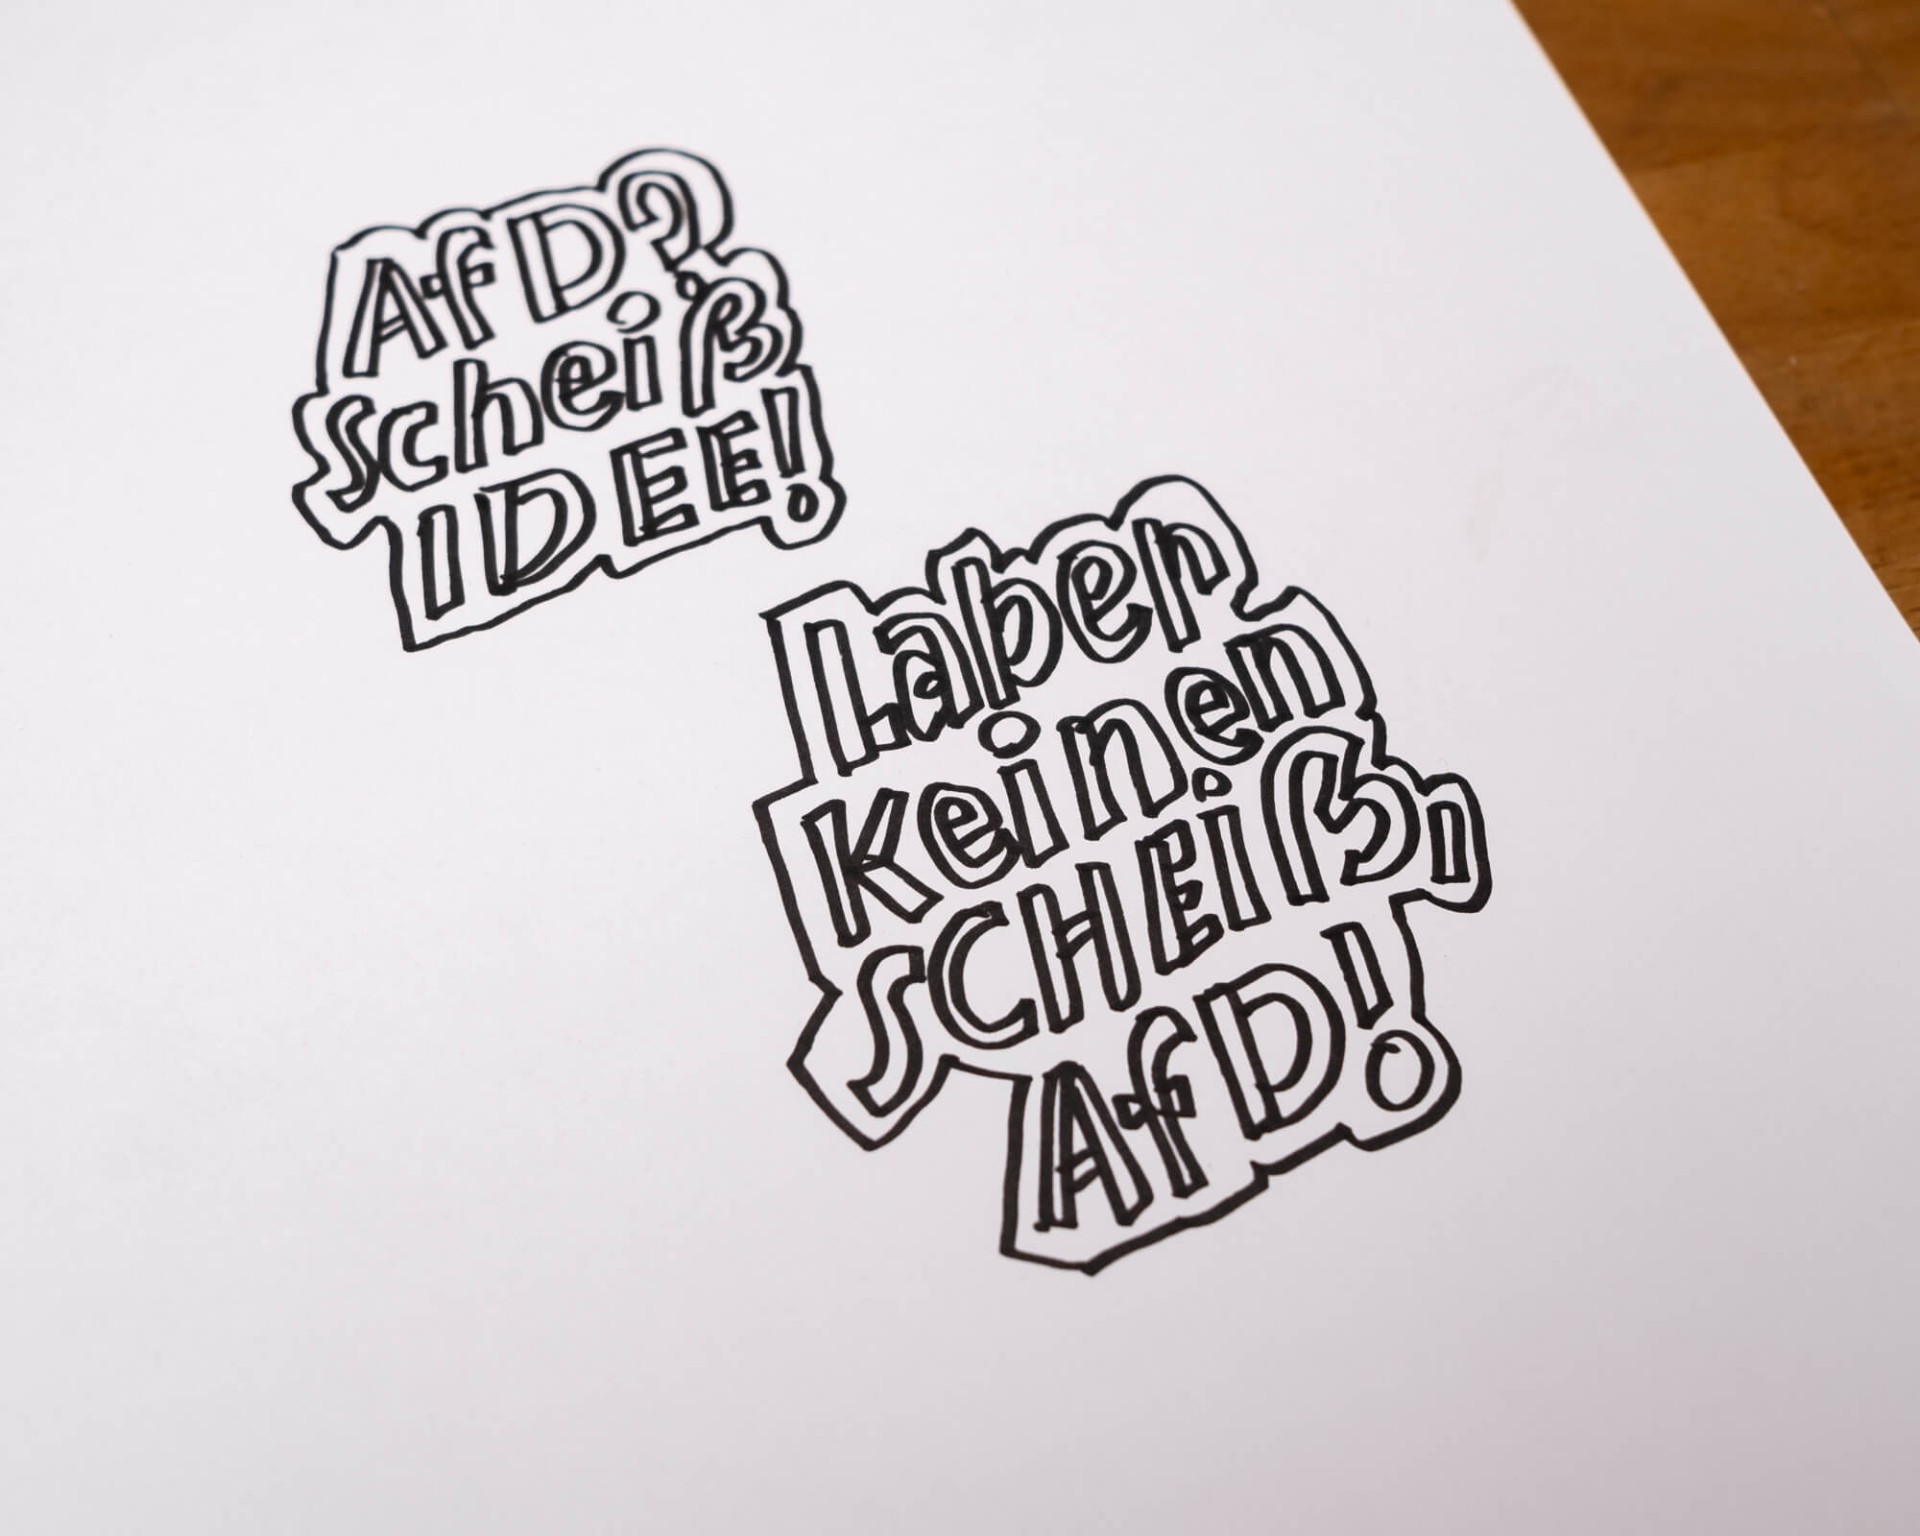 AfD?
Scheiß
IDEE!
Laber
Keinen
SCHEiß,
AfD!